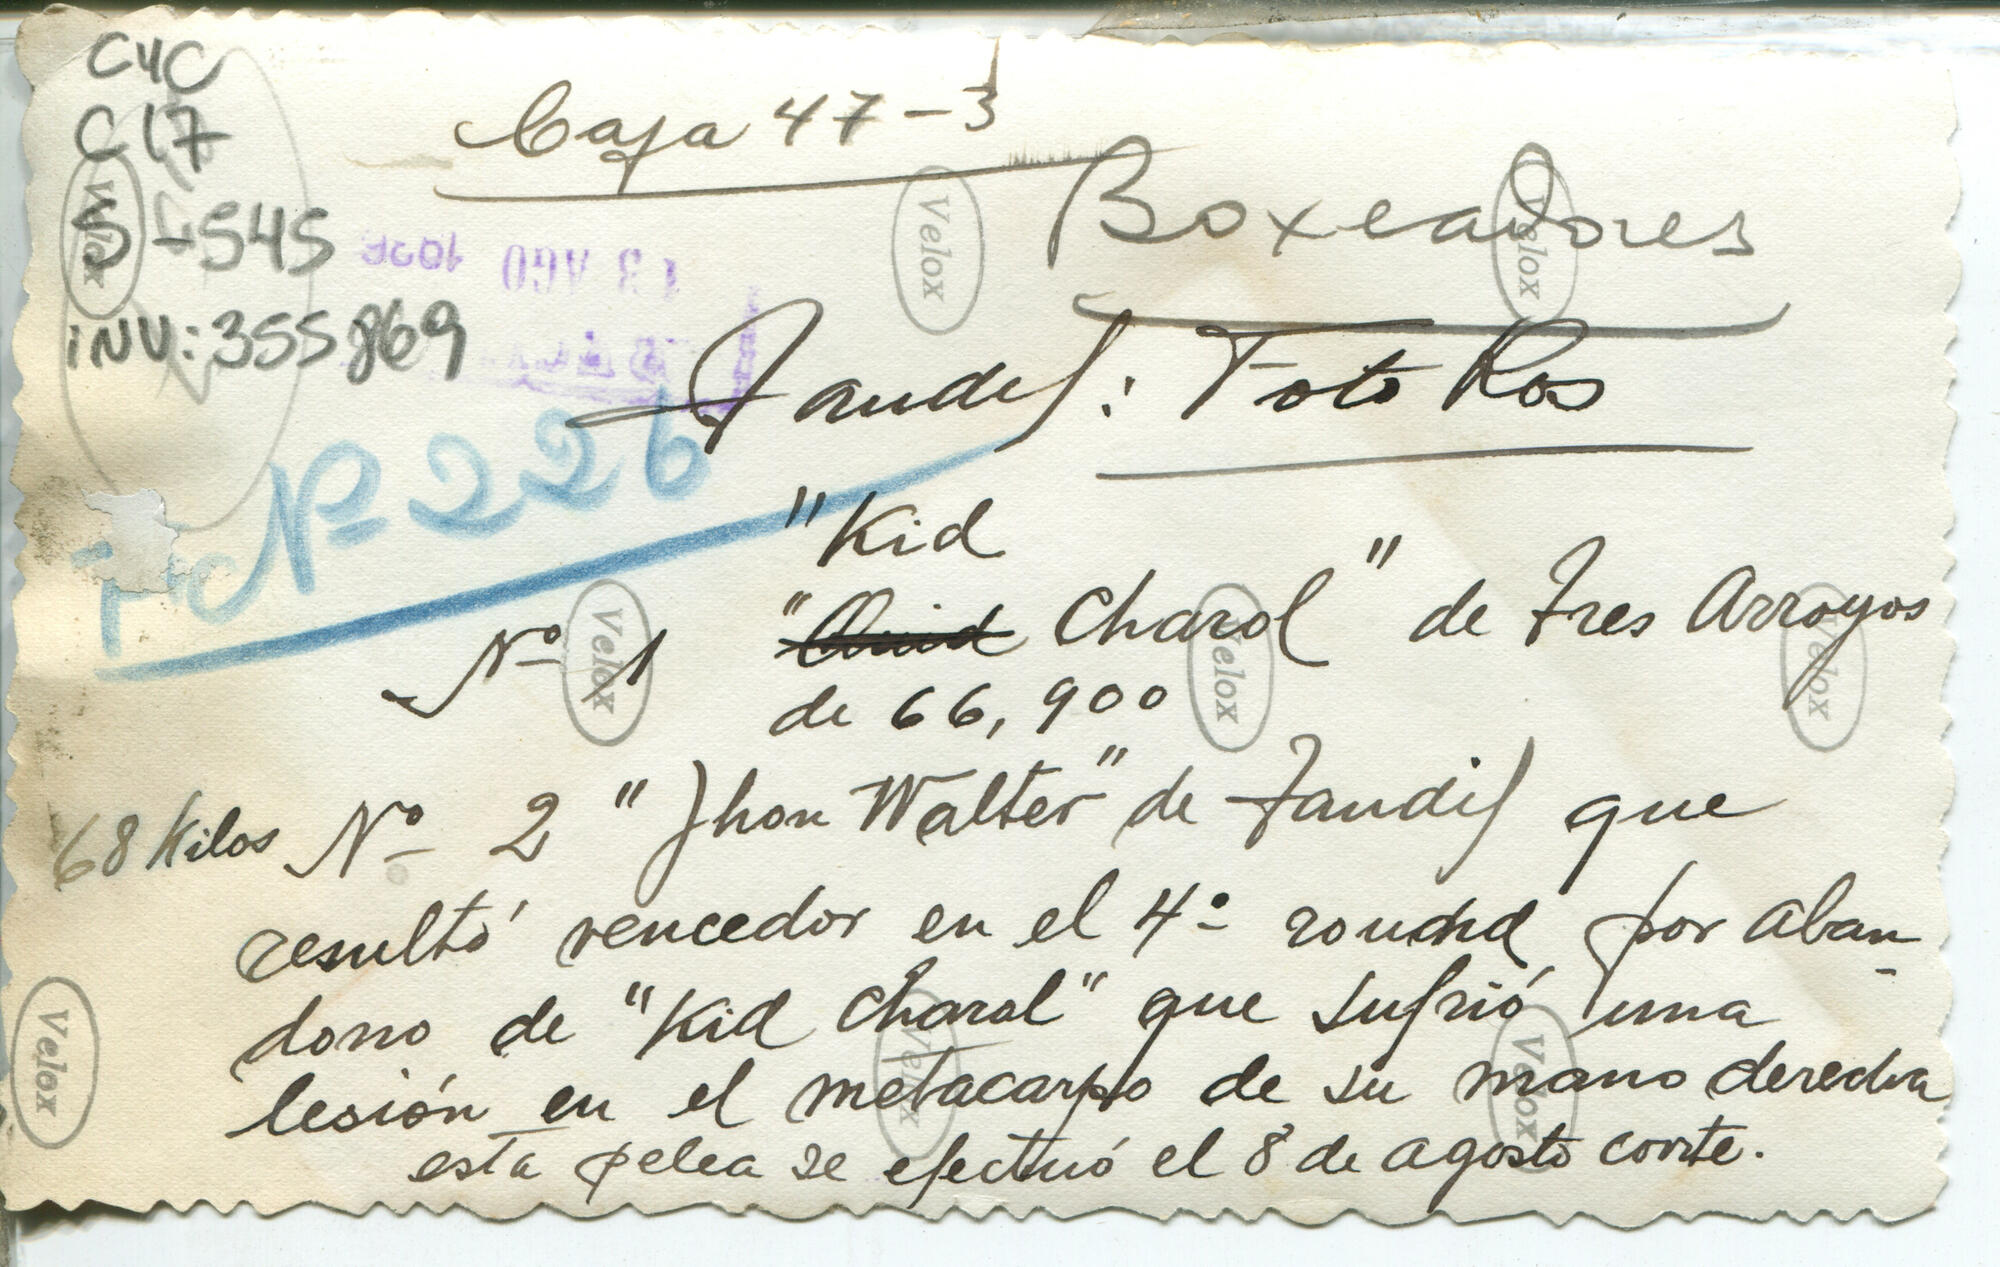 C4C
C17
S-545
INV: 355869
Caja 47-3
Boxeadores
13 AGO
Tandil: Foto Ros
Nº 226
"Kid
Nº 1 " Charol" de Tres Arroyos
de 66,900
68 Kilos Nº 2 "Jhon Walter" de Tandil que
resultó vencedor en el 4º round por aban-
dono de "Kid Charol" que sufrió una
lesión en el metacarpo de su mano derecha
esta pelea se efectuó el 8 de agosto corrte.
Velox
Velox
Velox
Velox
Velox
Velox
Velox
Velox
Velox